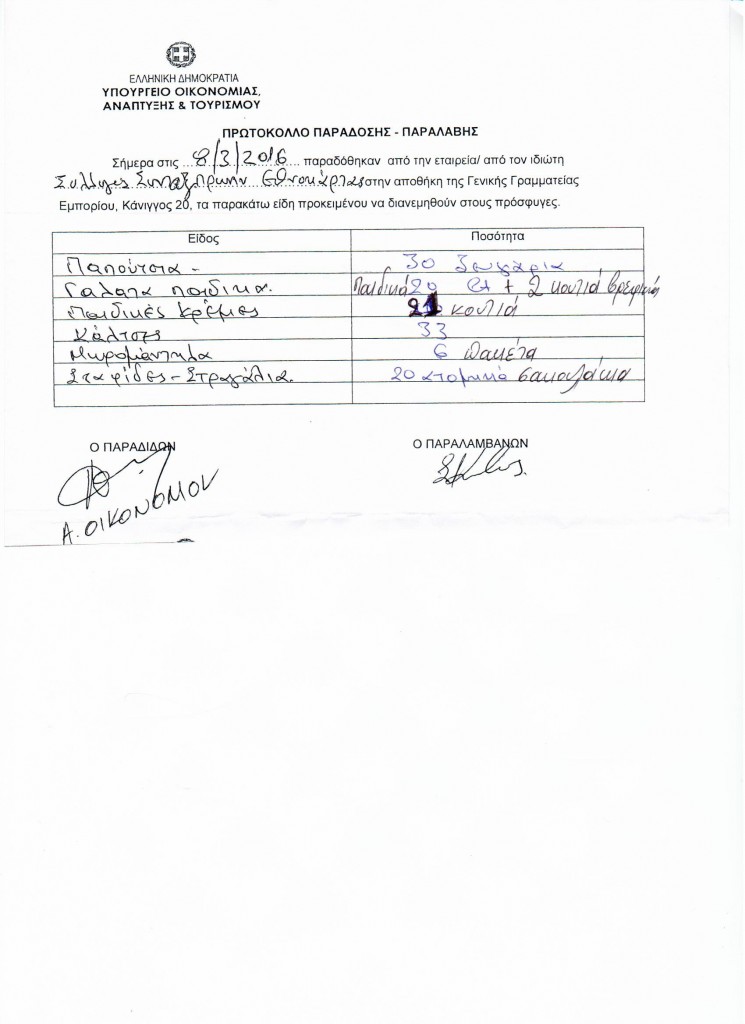 ΕΛΛΗΝΙΚΗ ΔΗΜΟΚΡΑΤΙΑ
ΥΠΟΥΡΓΕΙΟ ΟΙΚΟΝΟΜΙΑΣ,
ΑΝΑΠΤΥΞΗΣ & ΤΟΥΡΙΣΜΟΥ
ΠΡΩΤΟΚΟΛΛΟ ΠΑΡΑΔΟΣΗΣ - ΠΑΡΑΛΑΒΗΣ
Σήμερα στις 8/3/2016 παραδόθηκαν από την εταιρεία/ από τον ιδιώτη
στην αποθήκη της Γενικής Γραμματείας
Εμπορίου, Κάνιγγος 20, τα παρακάτω είδη προκειμένου να διανεμηθούν στους πρόσφυγες.
Είδος Ποσότητα
Παπούτσια - 30 Ζευγάρια
Γάλατα παιδικά. Παιδικά 20 + 2 κουτιά βρεφικά
Παιδικές Κρέμες 21 κουτιά
Κάλτσες 33
Μωρομάντηλα 6 πακέτα
Σταφίδες - Στραγάλια. 20 ατομικά σακουλάκια
Ο ΠΑΡΑΔΙΔΩΝ Ο ΠΑΡΑΛΑΜΒΑΝΩΝ
Α. ΟΙΚΟΝΟΜΟΥ